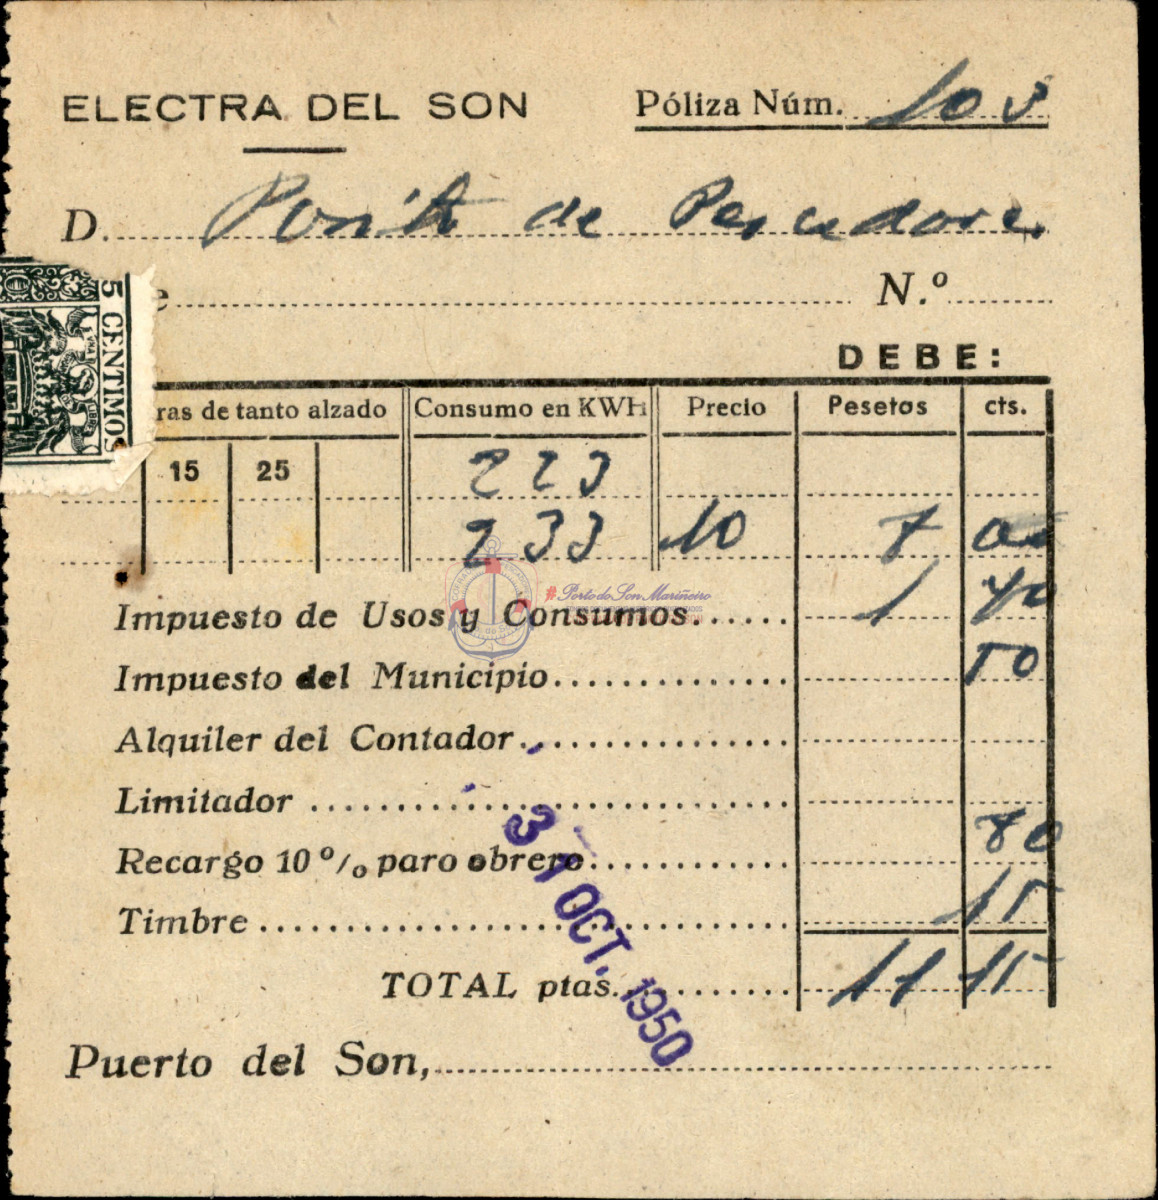 ELECTRA DEL SON
Póliza Núm. 103
D. Posito de Pescadores
e N.º
5 CENTIMOS
DEBE:
ras de tanto alzado Consumo en KWH Precio Pesetas cts.
15 25 223
233 10 7 00
Impuesto de Usos y Consumos 1
Impuesto del Municipio 50
Alquiler del Contador
Limitador
Recargo 10 % paro obrero 80
Timbre 15
TOTAL ptas. 11 15
31 OCT. 1950
Puerto del Son,
#Porto do Son Mariñeiro